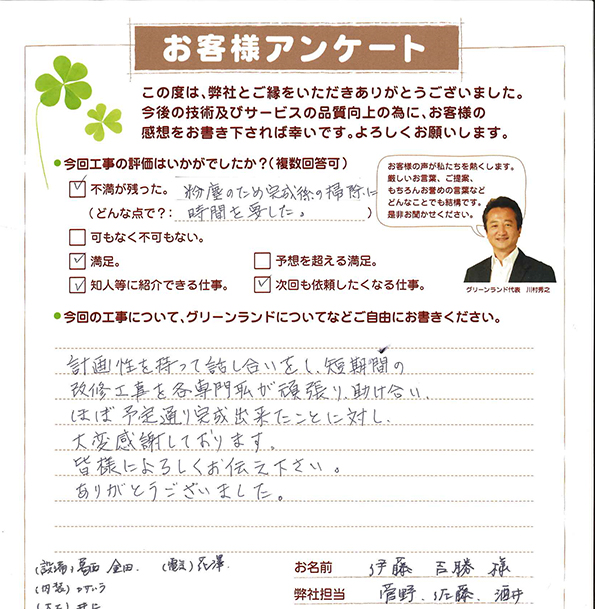 お客様アンケート
この度は、弊社とご縁をいただきありがとうございました。
今後の技術及びサービスの品質向上の為に、お客様の
感想をお書き下されば幸いです。よろしくお願いします。
今回工事の評価はいかがでしたか?(複数回答可)
不満が残った。 粉塵のため完成後の掃除に
(どんな点で?: 時間を要した。 )
可もなく不可もない。
満足。 予想を超える満足。
知人等に紹介できる仕事。 次回も依頼したくなる仕事。
お客様の声が私たちを熱くします。
厳しいお言葉、ご提案、
もちろんお誉めの言葉など
どんなことでも結構です。
是非お聞かせください。
グリーンランド代表 川村秀之
今回の工事について、グリーンランドについてなどご自由にお書きください。
計画性を持って話し合いをし、短期間の
改修工事を各専門職が頑張り、助け合い、
ほぼ予定通り完成出来たことに対し、
大変感謝しております。
皆様によろしくお伝え下さい。
ありがとうございました。
(設備) 葛西 金田 (電気) 花澤
(内装)
お名前 伊藤 吉勝 様
弊社担当 菅野、佐藤、酒井